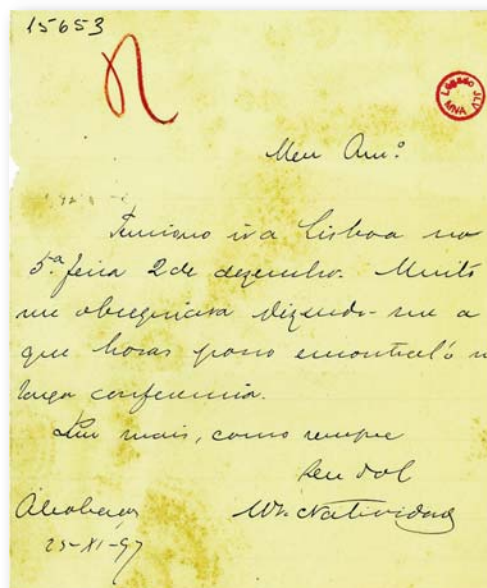 15653
n
Legado JLV MNA
Meu Am.º
Tenciono ir a Lisboa na
5.ª feira 2 de dezembro. Muito
me obsequiava dizendo-me a
que horas posso encontral'o n
larga conferencia.
Sem mais, como sempre
Seu
M. Natividade
Alcobaça
25-XI-97